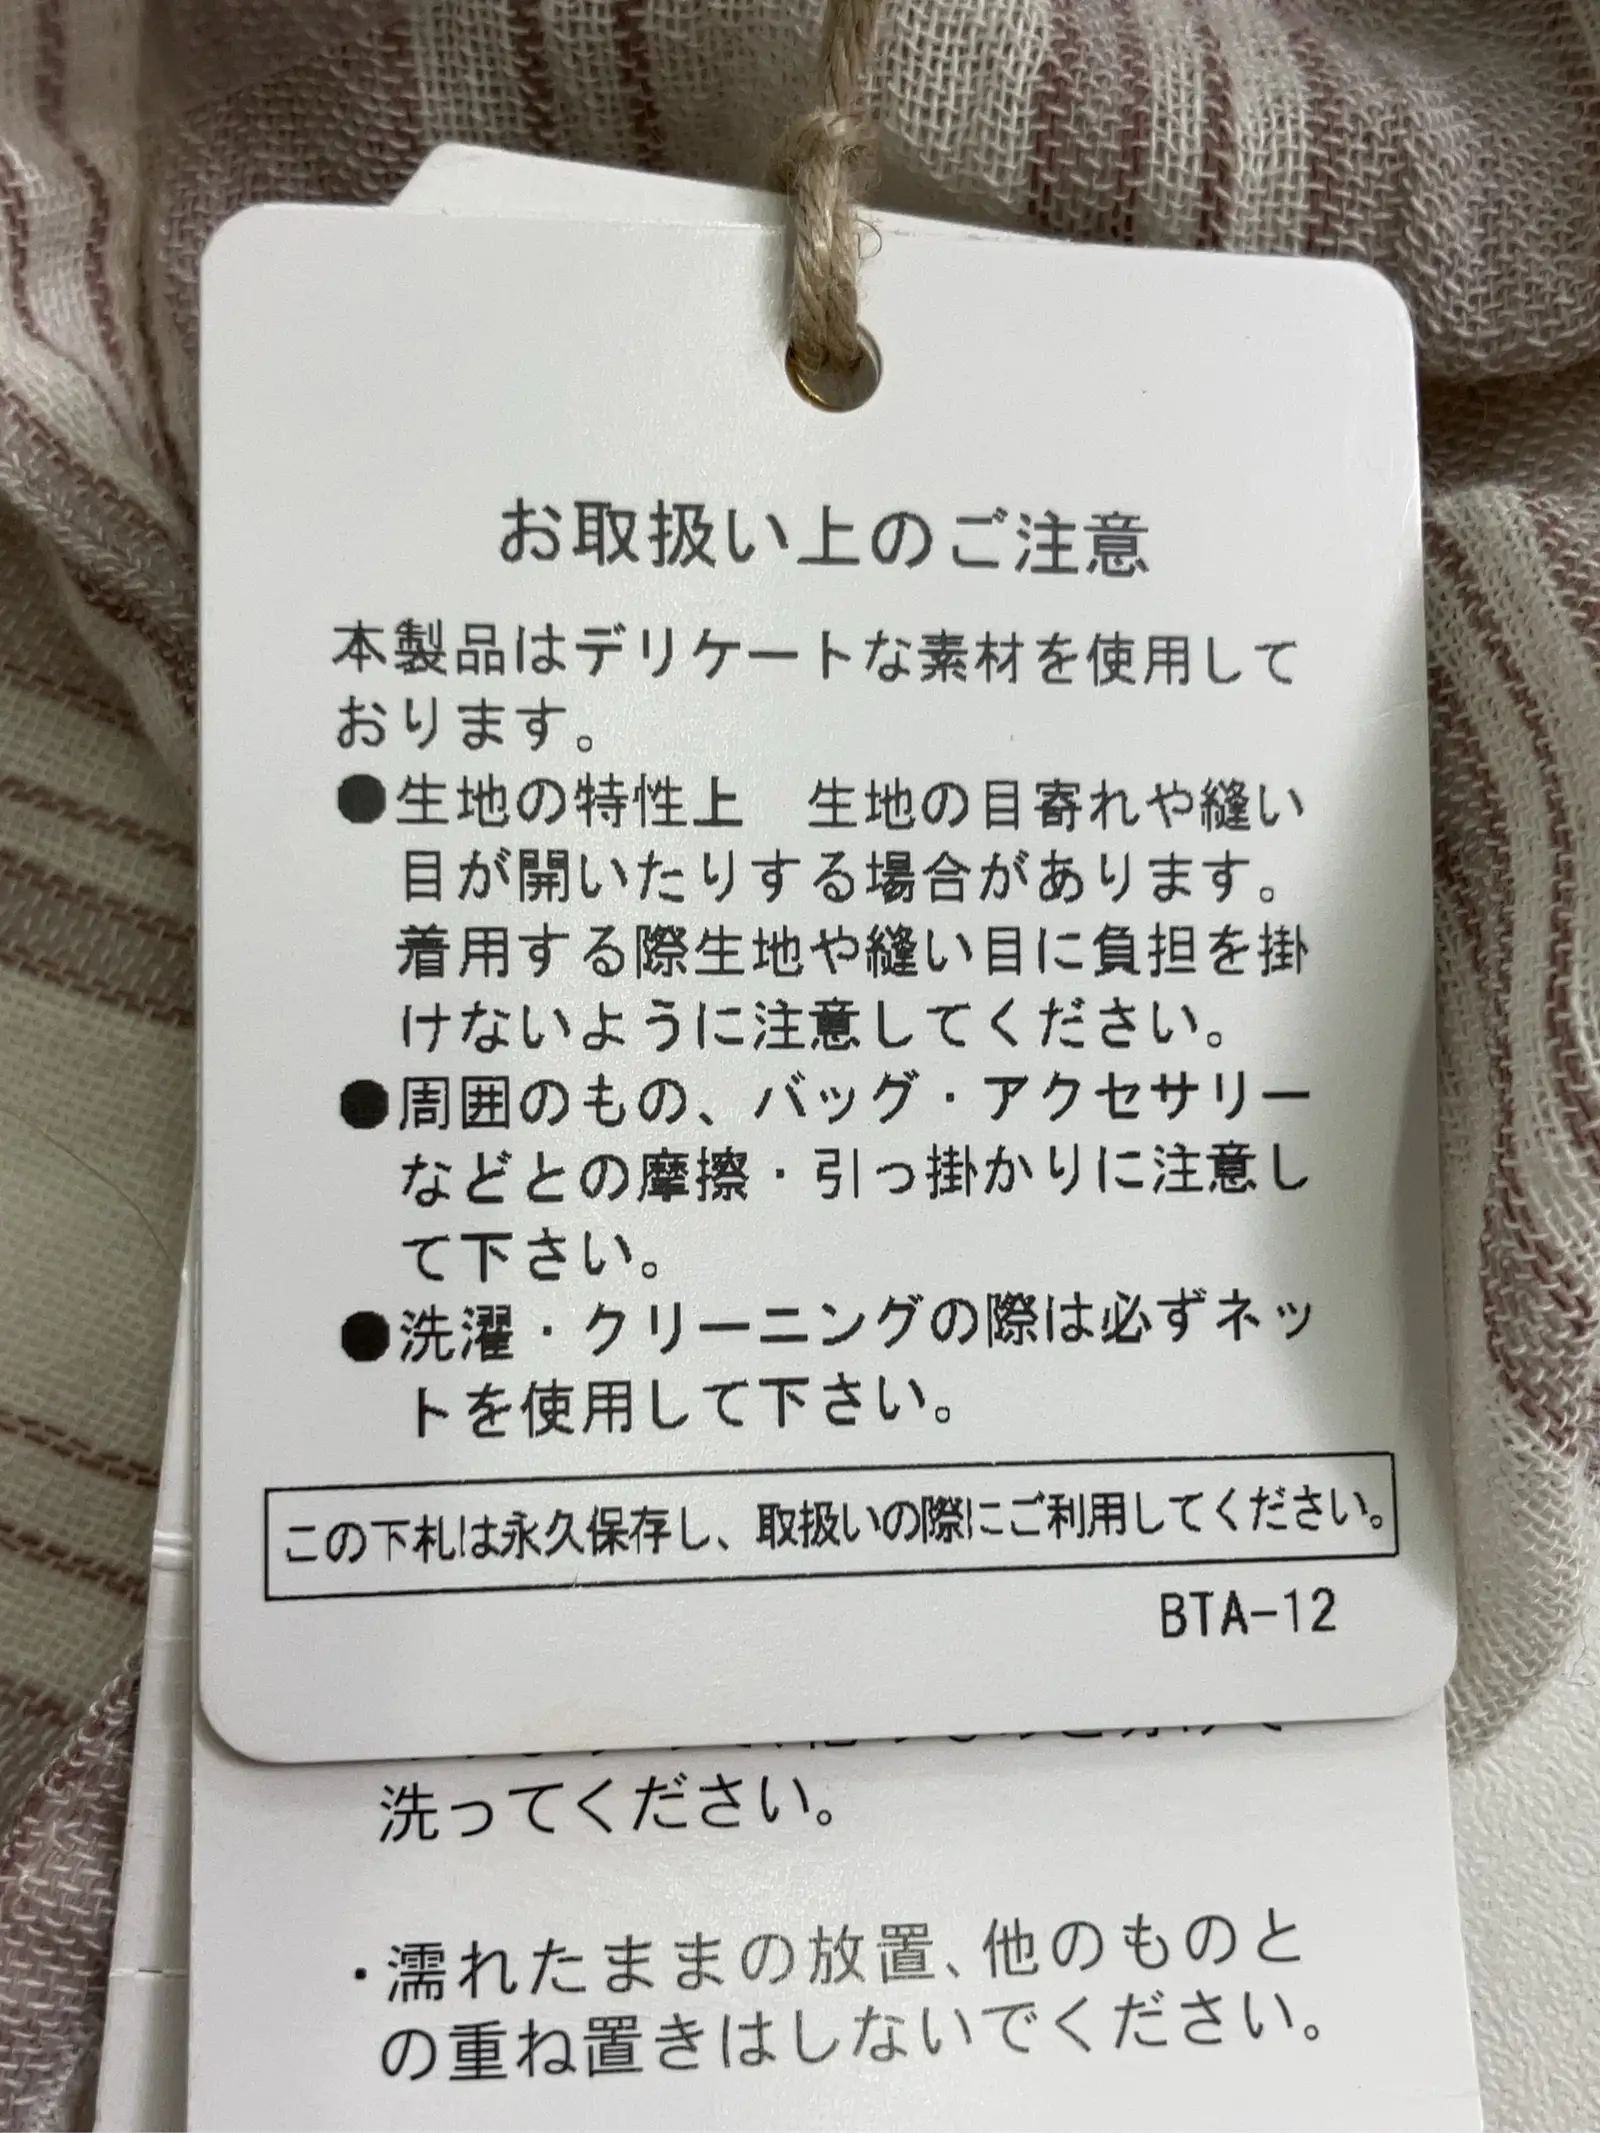 お取扱い上のご注意
本製品はデリケートな素材を使用して
おります。
●生地の特性上　生地の目寄れや縫い
目が開いたりする場合があります。
着用する際生地や縫い目に負担を掛
けないように注意してください。
●周囲のもの、バッグ・アクセサリー
などとの摩擦・引っ掛かりに注意し
て下さい。
●洗濯・クリーニングの際は必ずネッ
トを使用して下さい。
この下札は永久保存し、取扱いの際にご利用してください。
BTA-12
洗ってください。
・濡れたままの放置、他のものと
の重ね置きはしないでください。